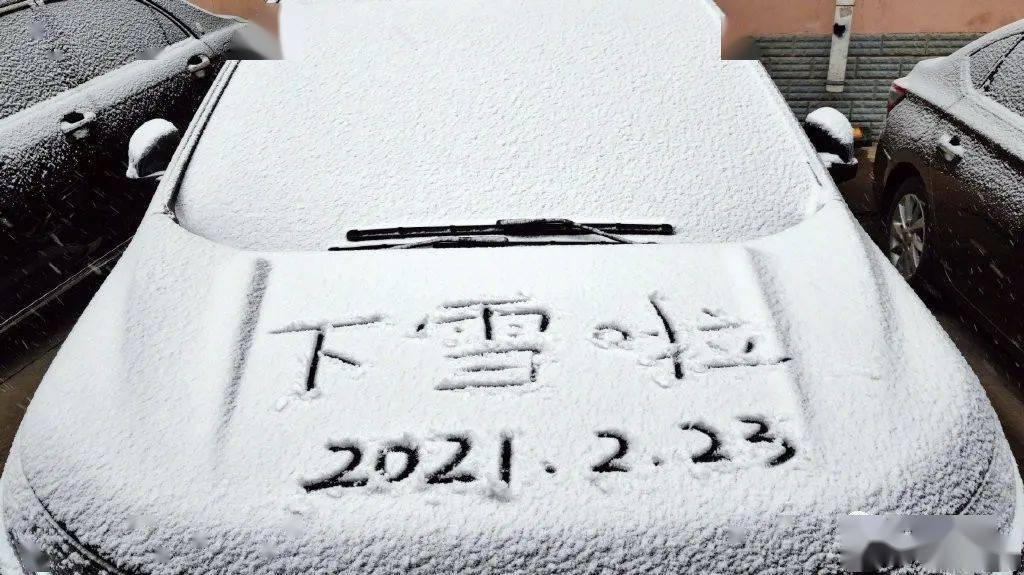 下雪啦
2021.2.23